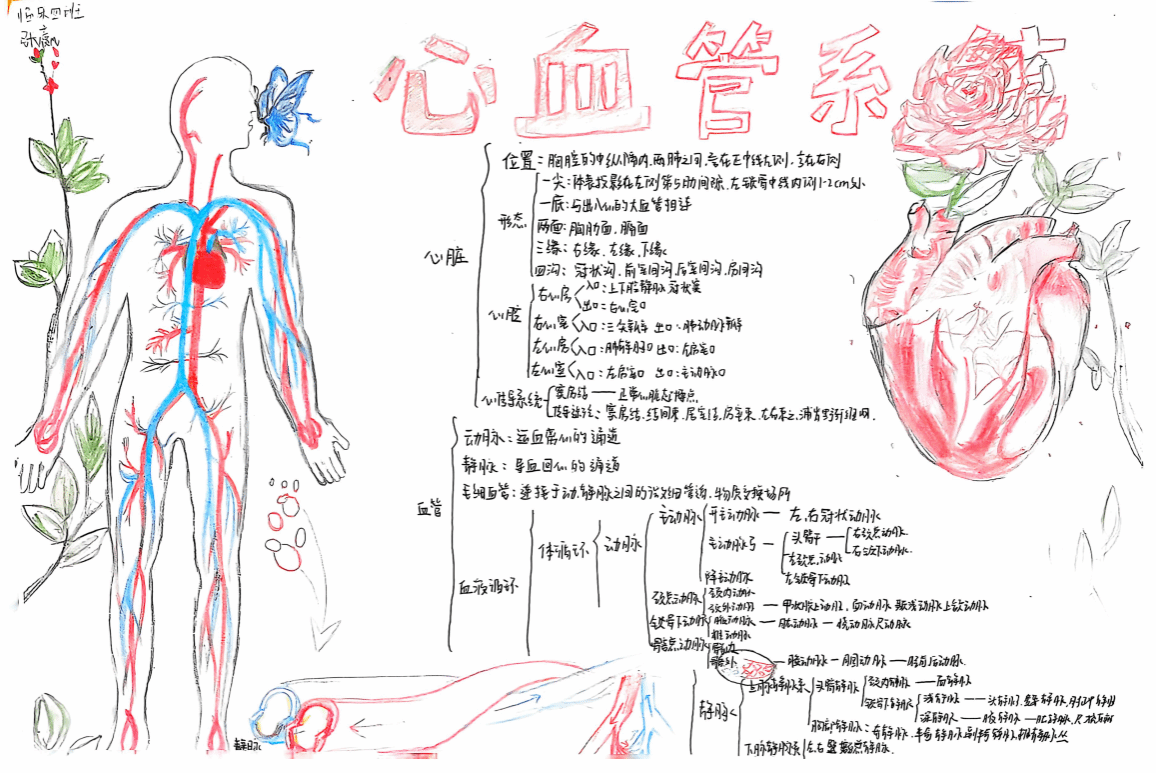 临床四班
心血管系统
心脏
位置：胸腔的中纵隔内，两肺之间，在正中线左侧，在右侧
形态
一尖：体表投影在左侧第5肋间隙，左锁骨中线内侧1-2cm处
一底：与出入心的大血管相连
两面：胸肋面，膈面
三缘：右缘、左缘、下缘
四沟：冠状沟，前室间沟，后室间沟，房间沟
心腔
右心房 入口：上下腔静脉 冠状窦
出口：右房室口
右心室 入口：三尖瓣 出口：肺动脉
左心房 入口：肺静脉口 出口：左房室口
左心室 入口：左房室口 出口：主动脉口
心传导系统
窦房结——正常心脏起搏点
窦房结、结间束、房室结、房室束、左右束支
血管
动脉：运血离心的通道
静脉：导血回心的通道
毛细血管：连接于动、静脉之间的细管道，物质交换场所
血液循环
体循环
动脉
主动脉
升主动脉 — 左、右冠状动脉
主动脉弓 — 头臂干 — 右颈总动脉
右锁骨下动脉
左颈总动脉
左锁骨下动脉
降主动脉
颈总动脉
颈内动脉
颈外动脉 — 甲状腺上动脉，面动脉 颞浅动脉 上颌动脉
锁骨下动脉
腋动脉 — 肱动脉 — 桡动脉 尺动脉
椎动脉
髂总动脉
髂内
髂外 — 股动脉 — 腘动脉 — 胫前后动脉
静脉
上腔静脉系
头臂静脉
颈内静脉 — 面静脉
锁骨下静脉
浅静脉 — 头静脉，贵要静脉，肘正中静脉
深静脉 — 腋静脉 — 肱静脉
胸部静脉：奇静脉，半奇静脉 副半奇静脉
下腔静脉系
左、右髂总静脉
静脉